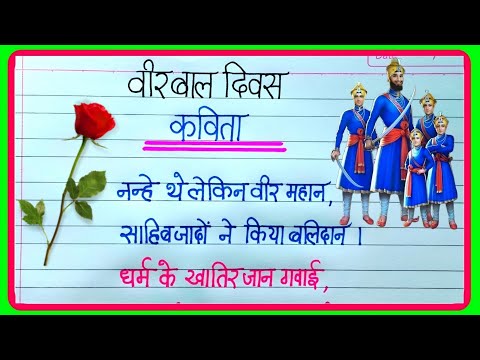 वीर बाल दिवस
कविता
नन्हे थे लेकिन वीर महान,
साहिबजादों ने किया बलिदान ।
धर्म के खातिर जान गवाई,